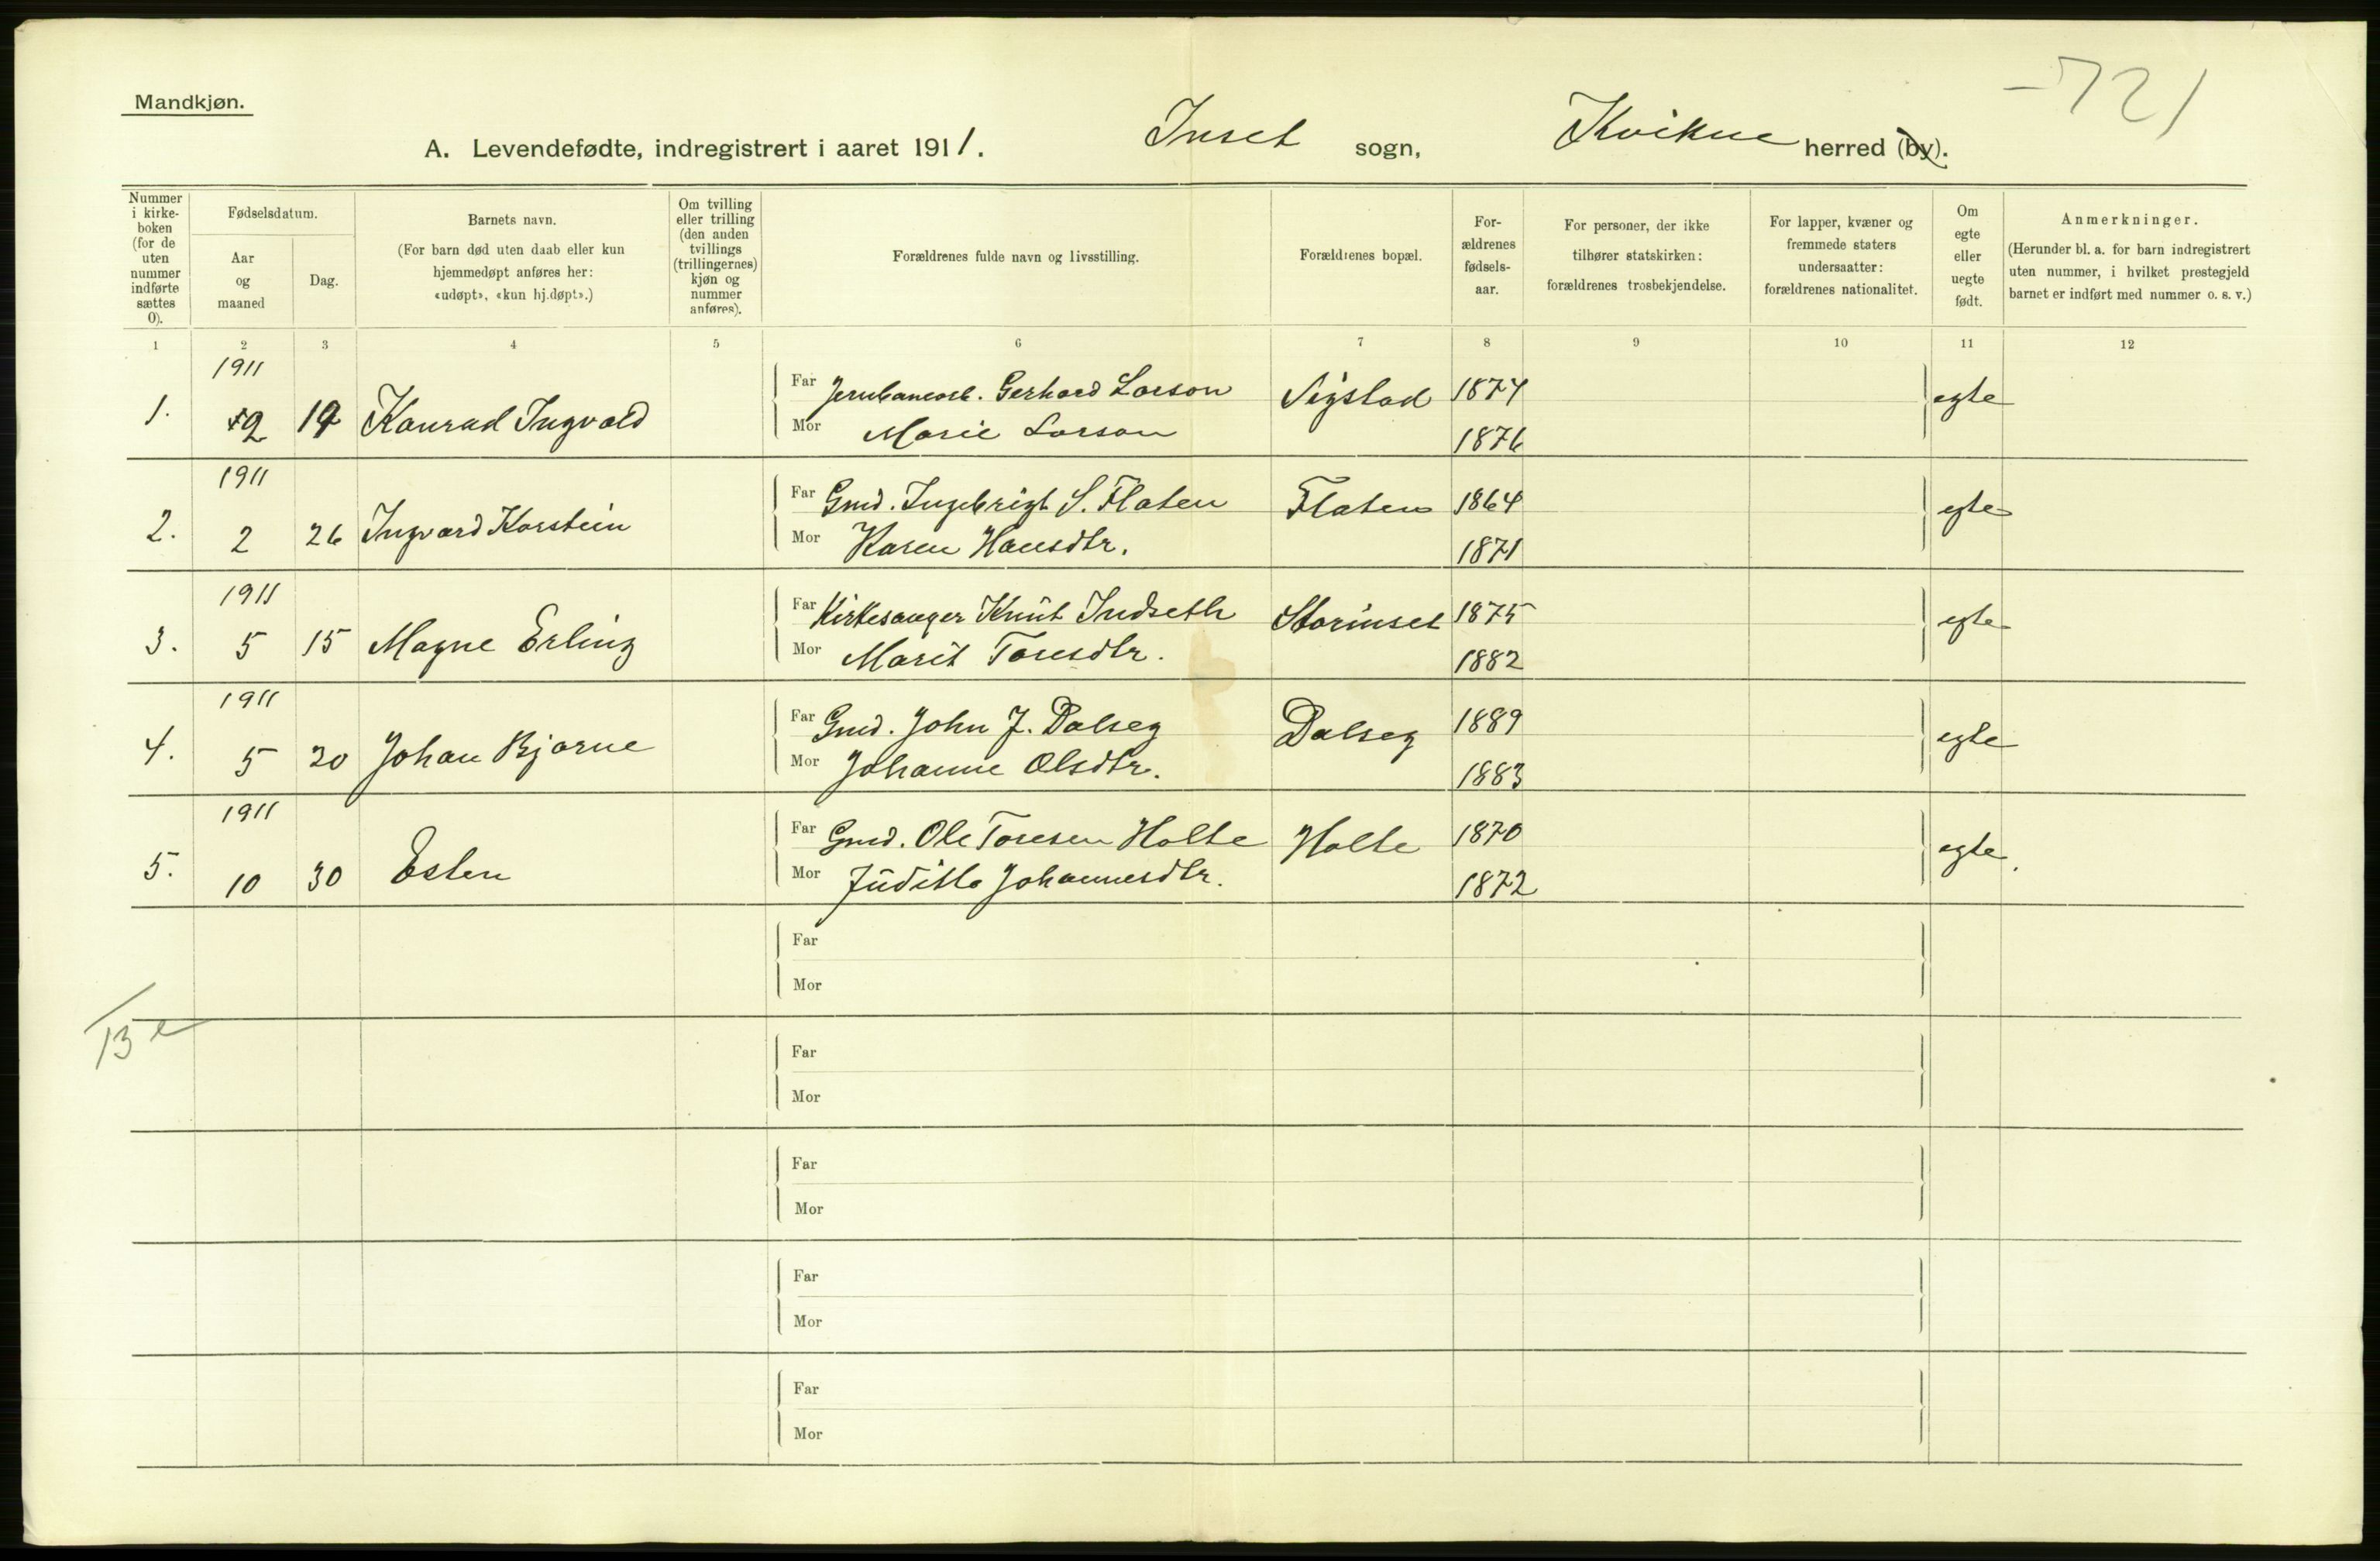 Mandkjøn.
-721
A. Levendefødte, indregistrert i aaret 1911. Inset sogn, Kvikne herred (by).
Nummer i kirke-boken (for de uten nummer indførte sættes 0).
Fødselsdatum.
Aar og maaned
Dag.
Barnets navn.
(For barn død uten daab eller kun hjemmedøpt anføres her: «udøpt», «kun hj.døpt».)
Om tvilling eller trilling (den anden tvillings (trillingernes) kjøn og nummer anføres).
Forældrenes fulde navn og livsstilling.
Forældrenes bopæl.
For-ældrenes fødsels-aar.
For personer, der ikke tilhører statskirken: forældrenes trosbekjendelse.
For lapper, kvæner og fremmede staters undersaatter: forældrenes nationalitet.
Om egte eller uegte født.
Anmerkninger.
(Herunder bl. a. for barn indregistrert uten nummer, i hvilket prestegjeld barnet er indført med nummer o. s. v.)
1 2 3 4 5 6 7 8 9 10 11 12
1911
1. 2 19 Konrad Ingvald Far Gerhard Larson 1874 egte
Mor Marie Larson 1876
1911
2. 2 26 Ingvard Karstein Far Gmd. Ingebrigt S. Flaten Flaten 1864 egte
Mor Karen Hansdtr. 1871
1911
3. 5 15 Magne Erling Far Kirkesanger Knut Indseth Storinset 1875 egte
Mor Marit Toresdtr. 1882
1911
4. 5 20 Johan Bjarne Far Gmd. John J. Dalseg Dalseg 1889 egte
Mor Johanne Olsdtr. 1883
1911
5. 10 30 Esten Far Gmd. Ole Toresen Holte Holte 1870 egte.
Mor Judith Johannesdtr. 1872
Far
Mor
13 e
Far
Mor
Far
Mor
Far
Mor
Far
Mor